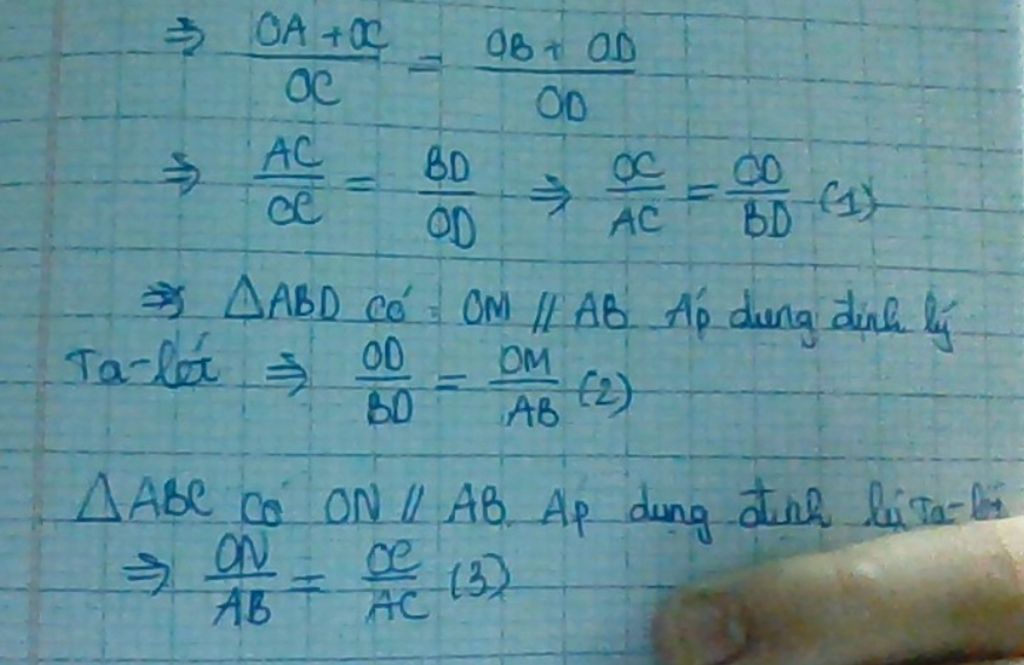 ⇒ (OA + OC)/OC = (OB + OD)/OD
⇒ AC/OC = BD/OD ⇒ OC/AC = OD/BD (1)
⇒ △ABD có : OM // AB Áp dụng định lý
Ta-lét ⇒ OD/BD = OM/AB (2)
△ABC có ON // AB. Áp dụng định lý Ta-lét
⇒ ON/AB = OC/AC (3)